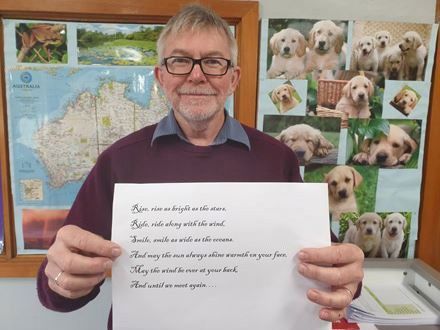 AUSTRALIA
Rise, rise as bright as the stars,
Ride, ride along with the wind,
Smile, smile as wide as the oceans.
And may the sun always shine warmth on your face,
May the wind be ever at your back,
And until we meet again....